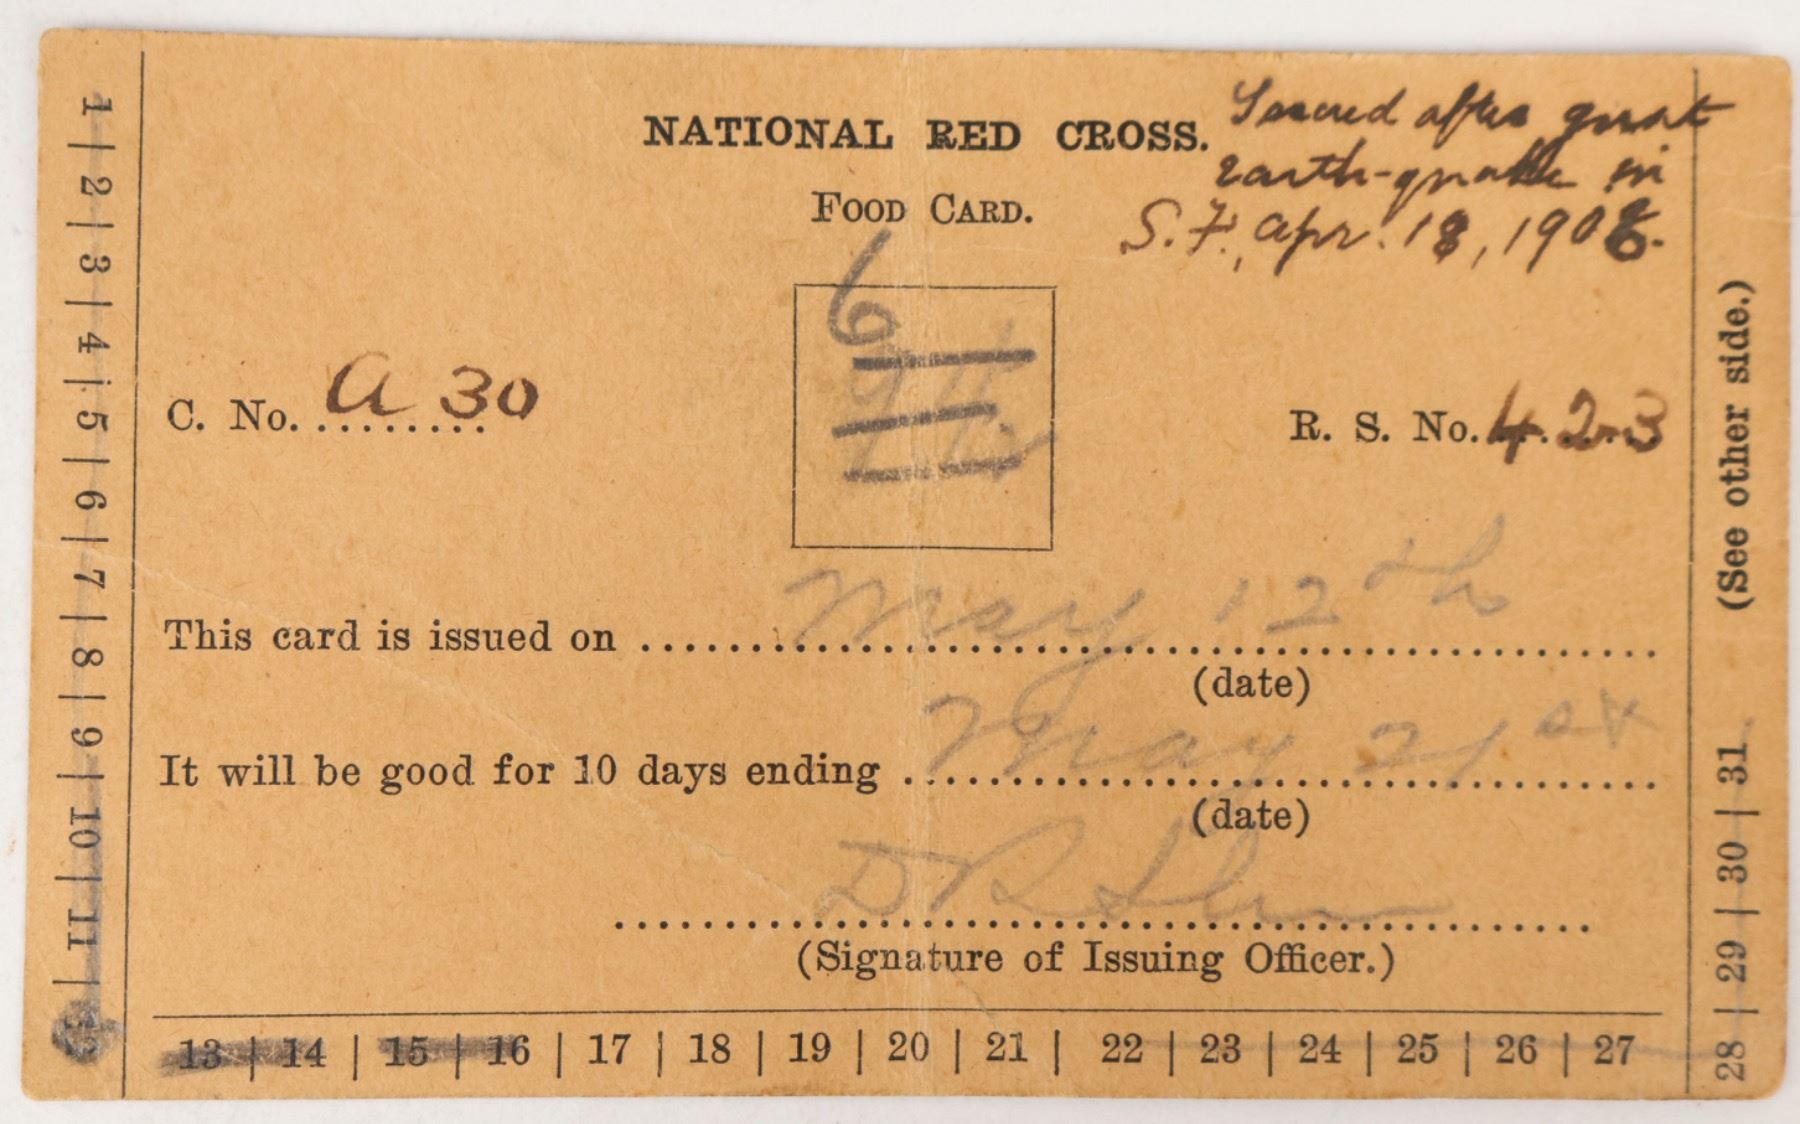 NATIONAL RED CROSS.
Issued after great
earth-quake in
S.F., Apr. 18, 1906.
FOOD CARD.
6
C. No. A 30
R. S. No. 423
This card is issued on May 12th
(date)
It will be good for 10 days ending May 21st
(date)
D R
(Signature of Issuing Officer.)
1 | 2 | 3 | 4 | 5 | 6 | 7 | 8 | 9 | 10 | 11 | 12
13 | 14 | 15 | 16 | 17 | 18 | 19 | 20 | 21 | 22 | 23 | 24 | 25 | 26 | 27
28 | 29 | 30 | 31
(See other side.)